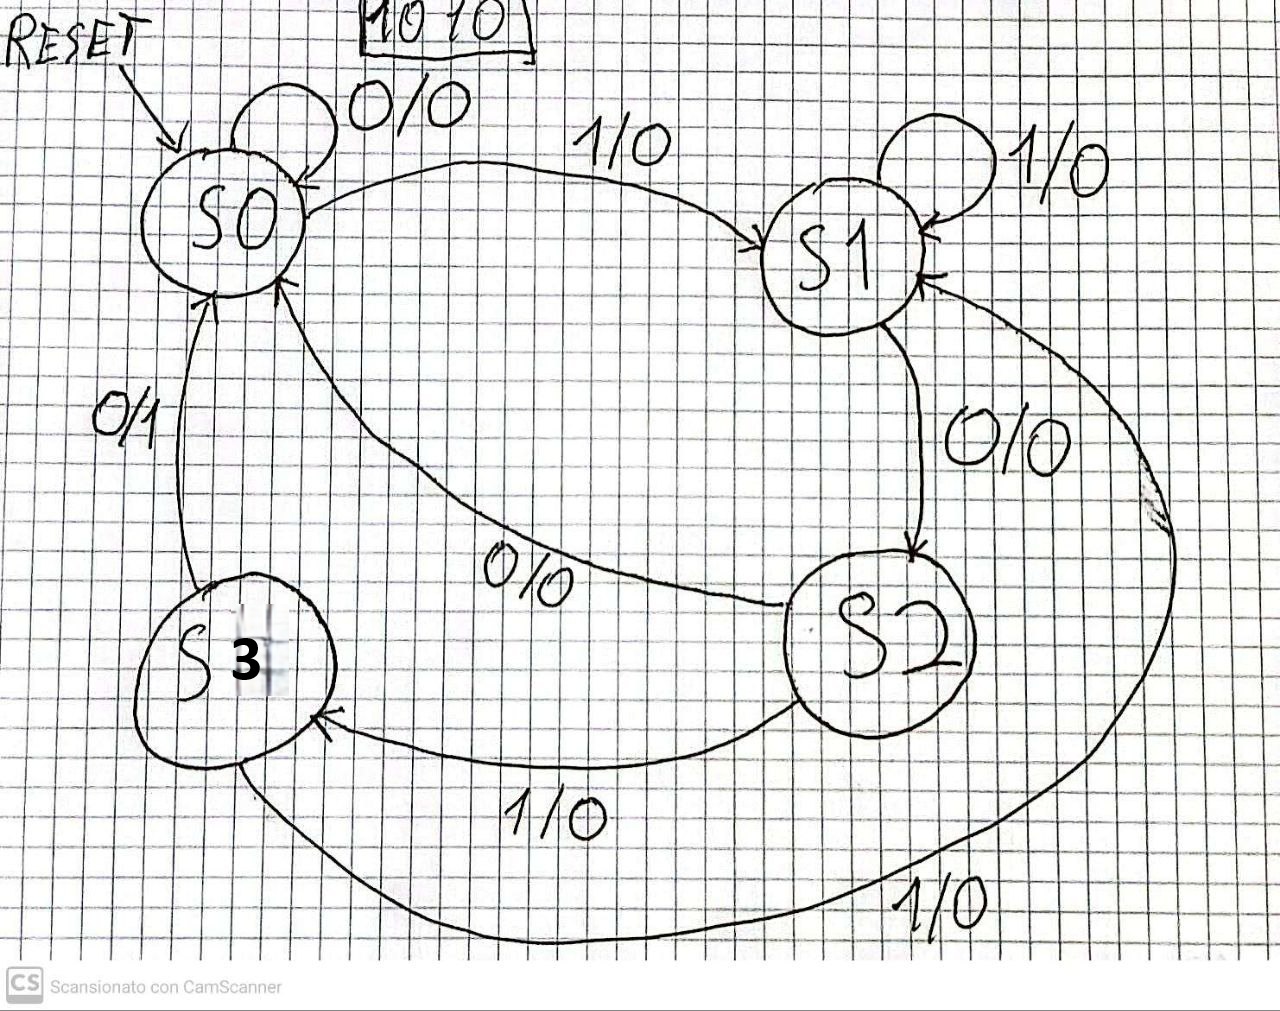 1010
RESET
0/0
1/0
1/0
S0
S1
0/1
0/0
0/0
S2
S3
1/0
1/0
CS Scansionato con CamScanner